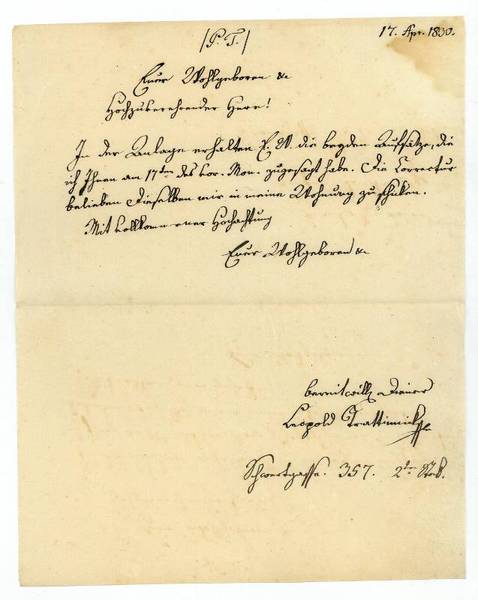 17. Apr. 1830.
/P. T./
Euer Wohlgeboren &c
Hochzuverehrender Herr!
In der Anlage erhalten E. W. die beyden Aufsätze, die
ich Ihnen am 17ten des vor. Mon. zugesagt habe. Die Correctur
belieben Dieselben mir in meine Wohnung zu schicken.
Mit vollkommener Hochachtung
Euer Wohlgeboren &c
bereitwill. Diener
Leopold Trattinnick
Schwertgasse. 357. 2ter Stok.